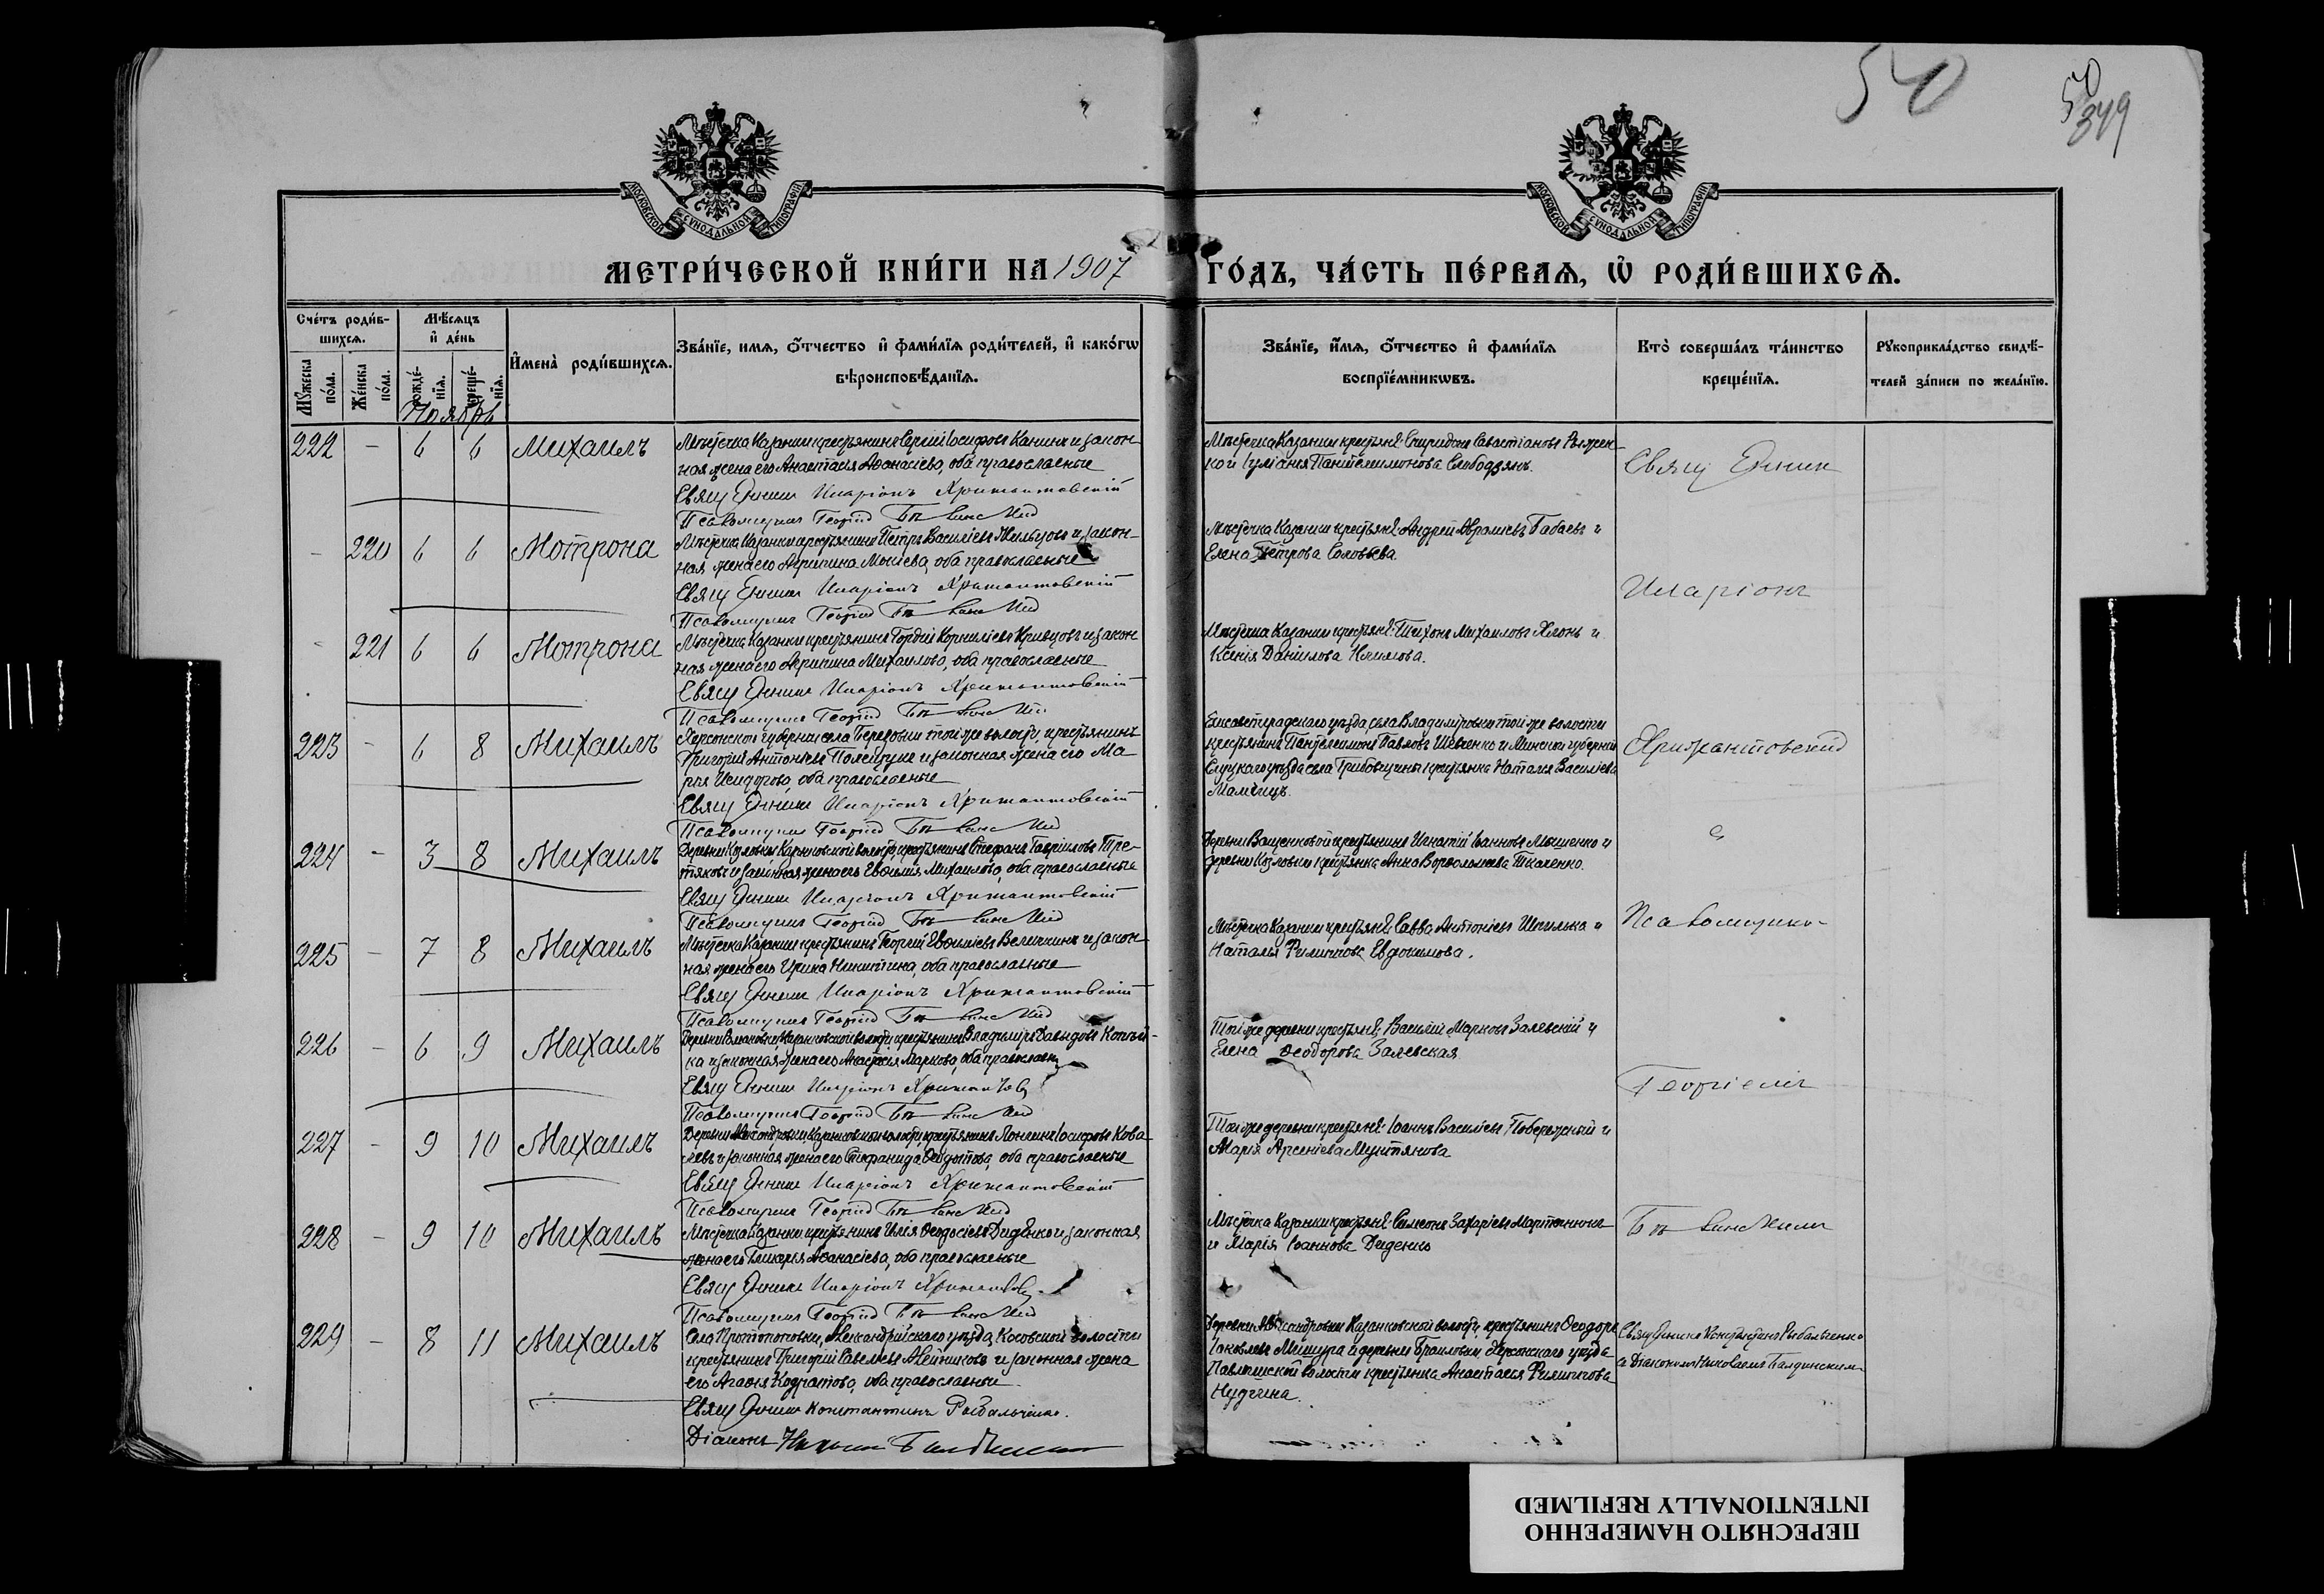 50
50
349
МОСКОВСКОЙ СѴНОДАЛЬНОЙ ТИПОГРАФІИ
МОСКОВСКОЙ СѴНОДАЛЬНОЙ ТИПОГРАФІИ
МЕТРИ́ЧЕСКОЙ КНИ́ГИ НА 1907 ГО́ДЪ, ЧА́СТЬ ПЕ́РВАѦ, Ѡ҆ РОДИ́ВШИХСѦ.
Сче́тъ роди́вшихсѧ.
Мꙋ́жеска по́ла.
Же́нска по́ла.
Мѣ́сѧцъ и҆ де́нь
рожде́нїѧ.
креще́нїѧ.
И҆мена̀ роди́вшихсѧ.
Зва́нїе, имѧ, ѻ҆́тчество и҆ фами́лїѧ роди́телей, и҆ како́гѡ вѣроисповѣ́данїѧ.
Зва́нїе, и҆́мѧ, ѻ҆́тчество и҆ фами́лїѧ воспрїе́мникѡвъ.
Кто̀ соверша́лъ та́инство креще́нїѧ.
Рꙋкоприкла́дство свидѣ́телей за́писи по жела́нїю.
Ноябрь
222 - 6 6 Михаилъ
Мѣстечка Казанки крестьянинъ Сергій Іосифовъ Канинъ и закон-
ная жена его Анастасія Аѳанасіева, оба православные
Священникъ Иларіонъ Хрисантовскій
Псаломщикъ Георгій
Мѣстечка Казанки крестьяне: Спиридонъ Севастіановъ
и Іуліанія Пантелеимонова Слободянъ.
Священник
- 220 6 6 Мотрона
Мѣстечка Казанки крестьянинъ Петръ Василіевъ Жильцовъ и закон-
ная жена его Агрипина Моисіева, оба православные
Священникъ Иларіонъ Хрисантовскій
Псаломщикъ Георгій
Мѣстечка Казанки крестьяне: Андрей Абрамовъ Бабаевъ и
Елена Петрова Соловьева.
Иларіонъ
- 221 6 6 Мотрона
Мѣстечка Казанки крестьянинъ Гордій Корниліевъ Кривцовъ и закон
ная жена его Агрипина Михаилова, оба православные
Священникъ Иларіонъ Хрисантовскій
Псаломщикъ Георгій
Мѣстечка Казанки крестьяне: Тихонъ Михаиловъ Хлонь и
Ксенія Даніилова
223 - 6 8 Михаилъ
Херсонской губерніи села Березовки той же волости, крестьянинъ
Григорій Антоніевъ Полещукъ и законная жена его Ма-
рія Исидорова, оба православные
Священникъ Иларіонъ Хрисантовскій
Псаломщикъ Георгій
Елисаветградскаго уѣзда, села Владиміровки той же волости
крестьянинъ Пантелеимонъ Павловъ Шевченко и Минской губерніи
Слуцкаго уѣзда села крестьянка Наталія Василіева
Мамчицъ.
Хрисантовскій
224 - 3 8 Михаилъ
Деревни Козловки Казанковской волости, крестьянинъ Стефанъ Гавріиловъ Тре-
тяковъ и законная жена его Евѳимія Михаилова, оба православные
Священникъ Иларіонъ Хрисантовскій
Псаломщикъ Георгій
Деревни крестьянинъ Игнатій Іоанновъ Мищенко и
деревни Козловки крестьянка Анна Варѳоломеева Ткаченко.
с
225 - 7 8 Михаилъ
Мѣстечка Казанки крестьянинъ Георгій Евѳиміевъ Величкинъ и закон-
ная жена его Ирина Никитина, оба православные
Священникъ Иларіонъ Хрисантовскій
Псаломщикъ Георгій
Мѣстечка Казанки крестьяне: Савва Антоніевъ Шпилька и
Наталія Филиппова Евдокимова.
Псаломщико-
226 - 6 9 Михаилъ
Деревни Казанковской волости, крестьянинъ Владиміръ Давидовъ Копій-
ка и законная жена его Анастасія Маркова, оба православн
Священникъ Иларіонъ
Псаломщикъ Георгій
Той же деревни крестьяне: Василій Марковъ Залевскій и
Елена Ѳеодорова Залевская
Георгіемъ
227 - 9 10 Михаилъ
Деревни Александровки, Казанковской волости, крестьянинъ Лонгинъ Іосифовъ Кова-
левъ и законная жена его Стефанида Ѳеодотова, оба православные
Священникъ Иларіонъ Хрисантовскій
Псаломщикъ Георгій
Той же деревни крестьяне: Іоаннъ Василіевъ Побережный и
Марія Арсеніева Мунтянова
228 - 9 10 Михаилъ
Мѣстечка Казанки крестьянинъ Илія Ѳеодосіевъ Диденко и законная
жена его Гликерія Аѳанасіева, оба православные
Священникъ Иларіонъ
Псаломщикъ Георгій
Мѣстечка Казанки крестьяне: Симеонъ Захаріевъ Мартынюкъ
и Марія Іоаннова Диденко
229 - 8 11 Михаилъ
Села Протопоповки, Александрійскаго уѣзда, Косовской волости
крестьянинъ Григорій Савеліевъ Алейниковъ и законная жена
его Агаѳія Кодратова, оба православные
Священникъ Константинъ Рыбальченко.
Діаконъ Николай
Деревни Александровки Казанковской волости, крестьянинъ Ѳеодоръ
Іаковлевъ Мишура и деревни Браиловки Херсонскаго уѣзда
Павловской волости крестьянка Анастасія Филиппова
Нудгина.
Священникъ Константинъ Рыбальченко
съ Діакономъ Николаемъ
ПЕРЕСНЯТО НАМЕРЕННО
INTENTIONALLY REFILMED